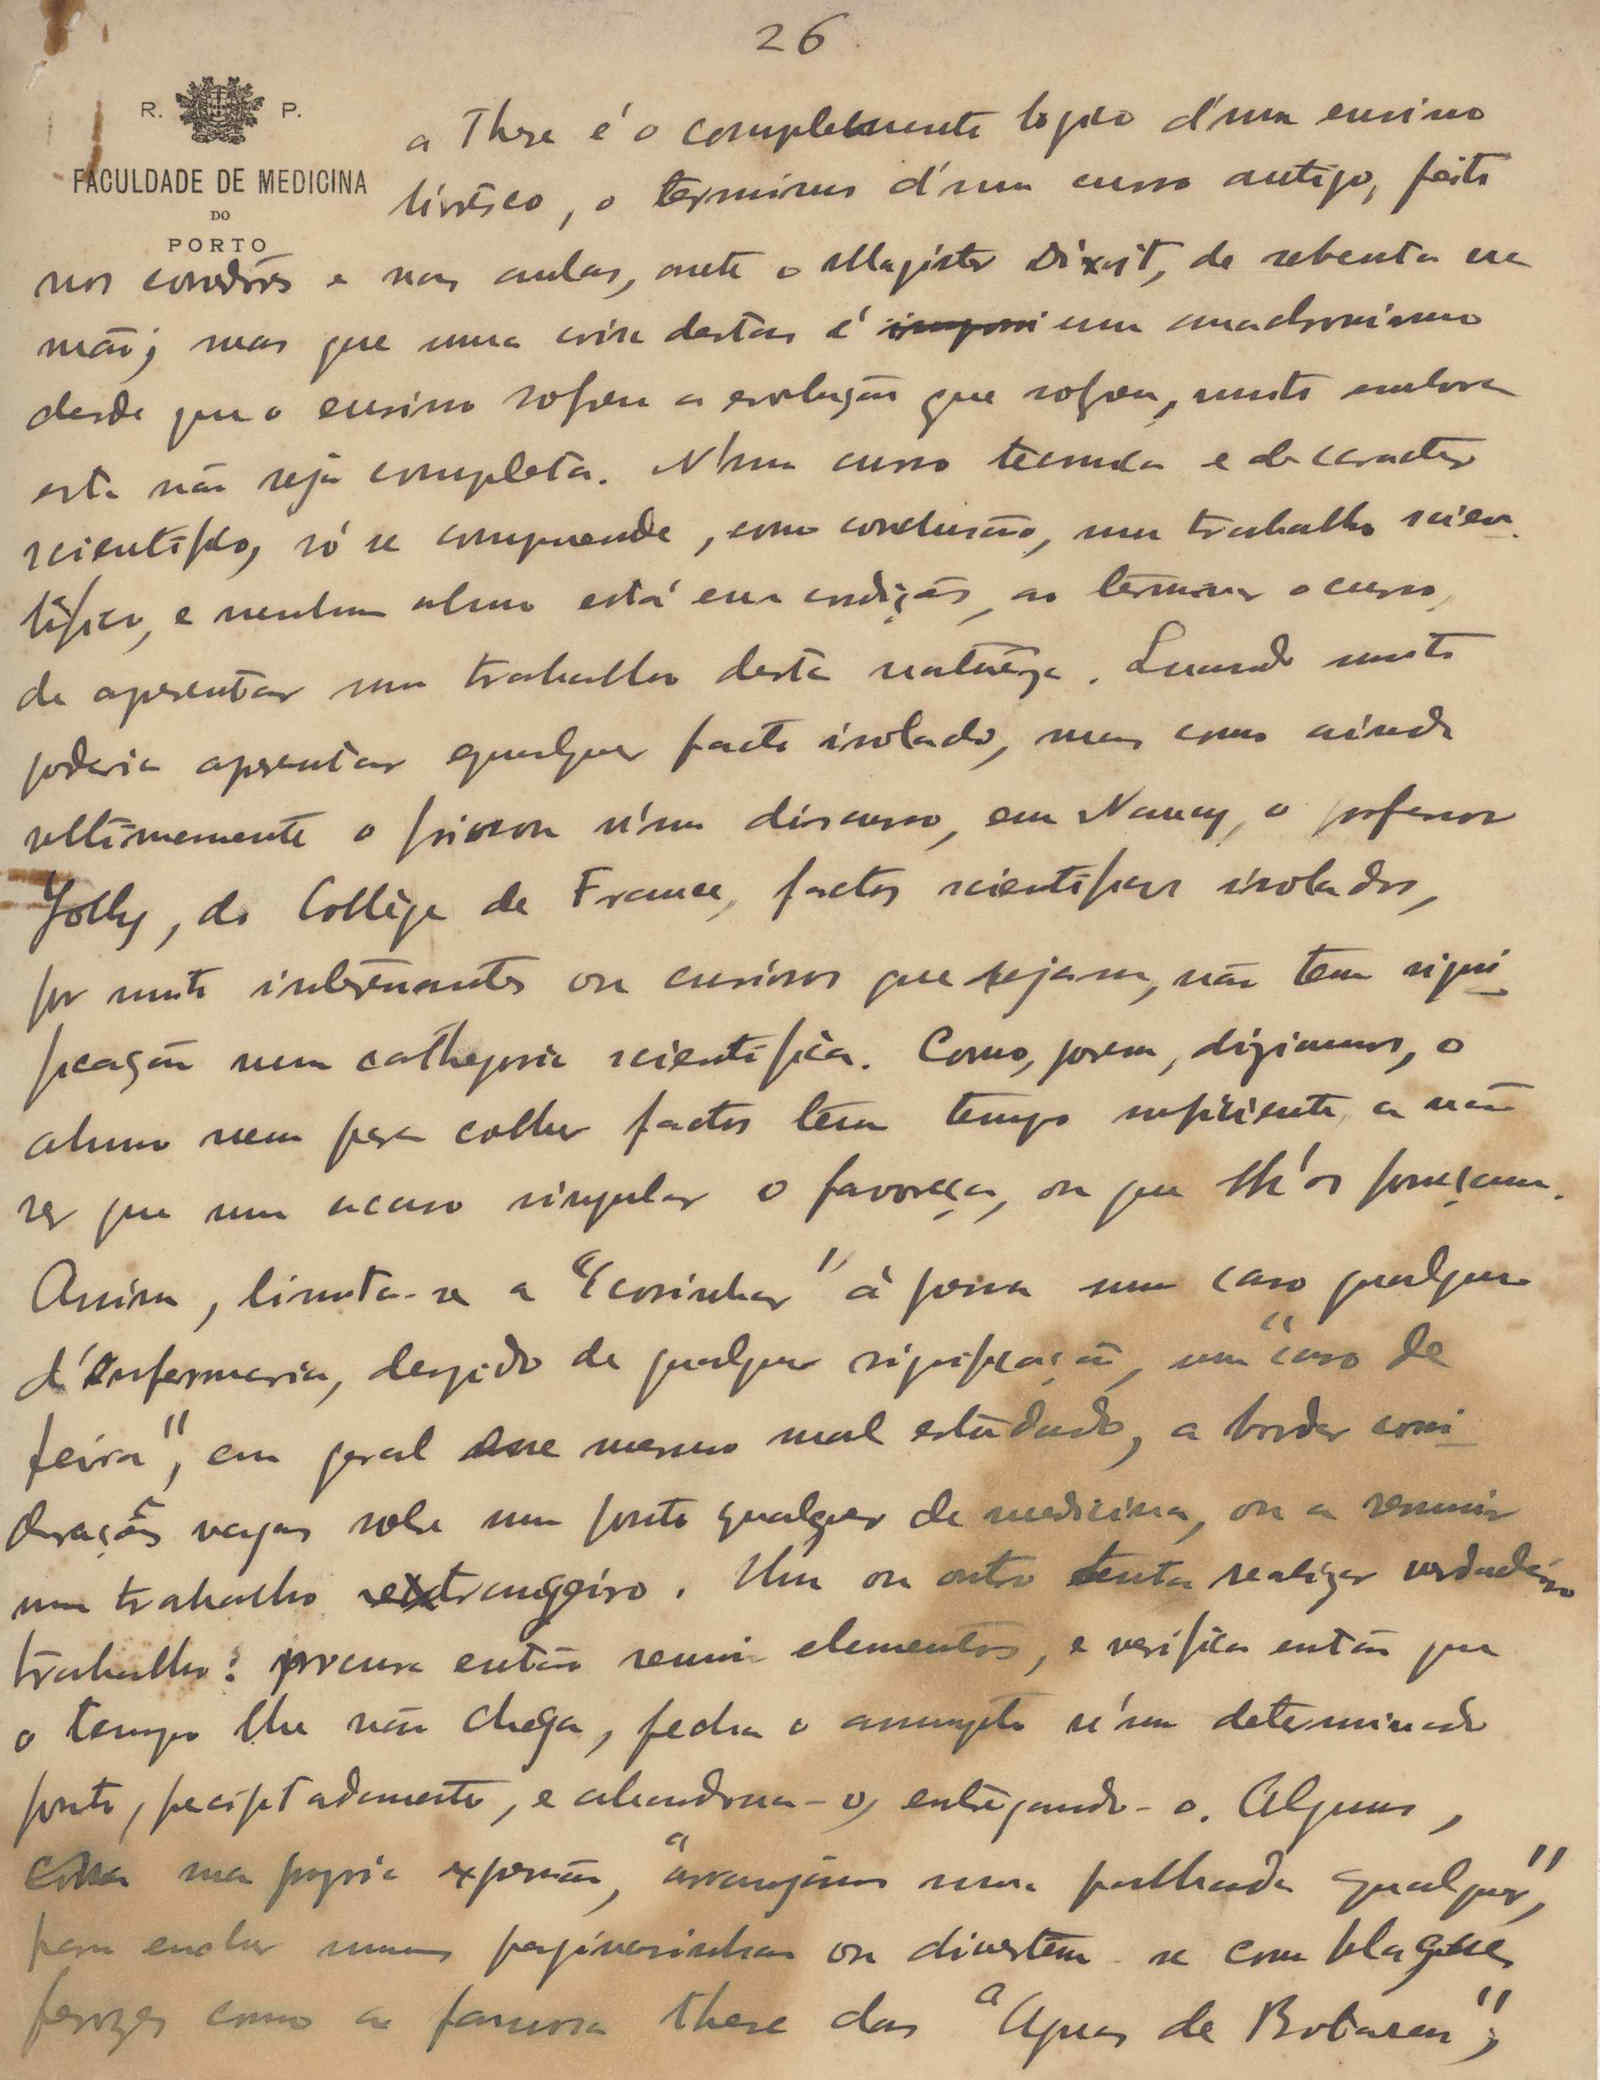 26
R. P.
FACULDADE DE MEDICINA
DO
PORTO
a These é o complemento logico d'um ensino
livrêsco, o terminus d'um curso antigo, feito
nos corredôres e nas aulas, ante o Magister Dixit, de sebenta na
mão; mas que uma coisa destas é um anachronismo
desde que o ensino sofreu a evolução que sofreu, muito embora
esta não seja completa. N'um curso technico e de caracter
scientifico, só se comprende, como conclusão, um trabalho scien-
tifico, e nenhum aluno está em condições, ao terminar o curso,
de apresentar um trabalho desta naturêza. Quando muito
poderia apresentar qualquer facto isolado, mas como ainda
ultimamente o frisou n'um discurso, em Nancy, o professor
Jolly, do Collège de France, factos scientificos isolados,
por muito interessantes ou curiosos que sejam, não tem signi-
ficação nem cathegoria scientifica. Como, porem, diziamos, o
aluno nem para colher factos têm tempo suficiente, a não
ser que um acaso singular o favoreça, ou que lh'os forneçam.
Assim, limita-se a "cosinhar" á pressa um caso qualquer
d'enfermaria, despido de qualquer significação, um "caso de
feira", em geral esse mesmo mal estudado, a bordar consi-
derações vagas sobre um ponto qualquer de medicina, ou a resumir
um trabalho extrangeiro. Um ou outro tenta realizar verdadeiro
trabalho: procura então reunir elementos, e verifica então que
o tempo lhe não chega, fecha o assumpto n'um determinado
ponto, precipitadamente, e abandona-o, entregando-o. Alguns,
na propria expressão, "arranjam uma palhada qualquer",
para encher umas paginasinhas ou divertem-se com blagues
ferozes como a famosa these das "Aguas de